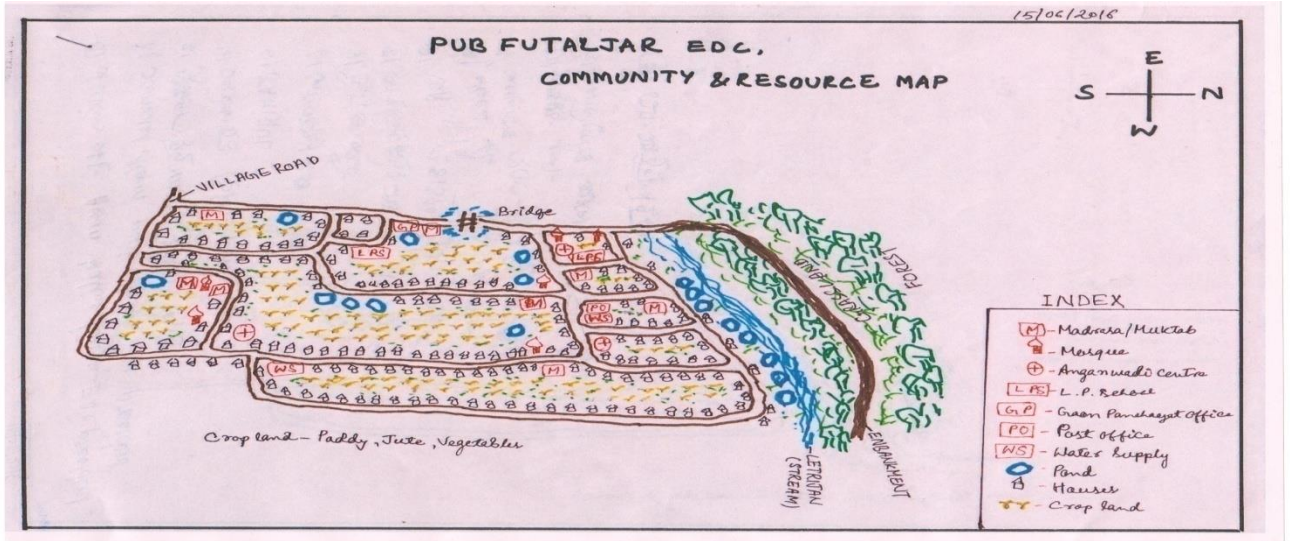 15/06/2016
PUB FUTALJAR EDC.
COMMUNITY & RESOURCE MAP
E
S N
W
VILLAGE ROAD
Bridge
M
GP M
LPS
LPS
M
M
M
M
PO M
WS
WS
M
FOREST
EMBANKMENT
(STREAM)
Crop land - Paddy, Jute, Vegetables
INDEX
M - Madrasa/Muktab
- Mosque
- Anganwadi Centre
LPS - L.P. School
GP - Gaon Panchayat Office
PO - Post office
WS - Water Supply
Pond
- Houses
- Crop land